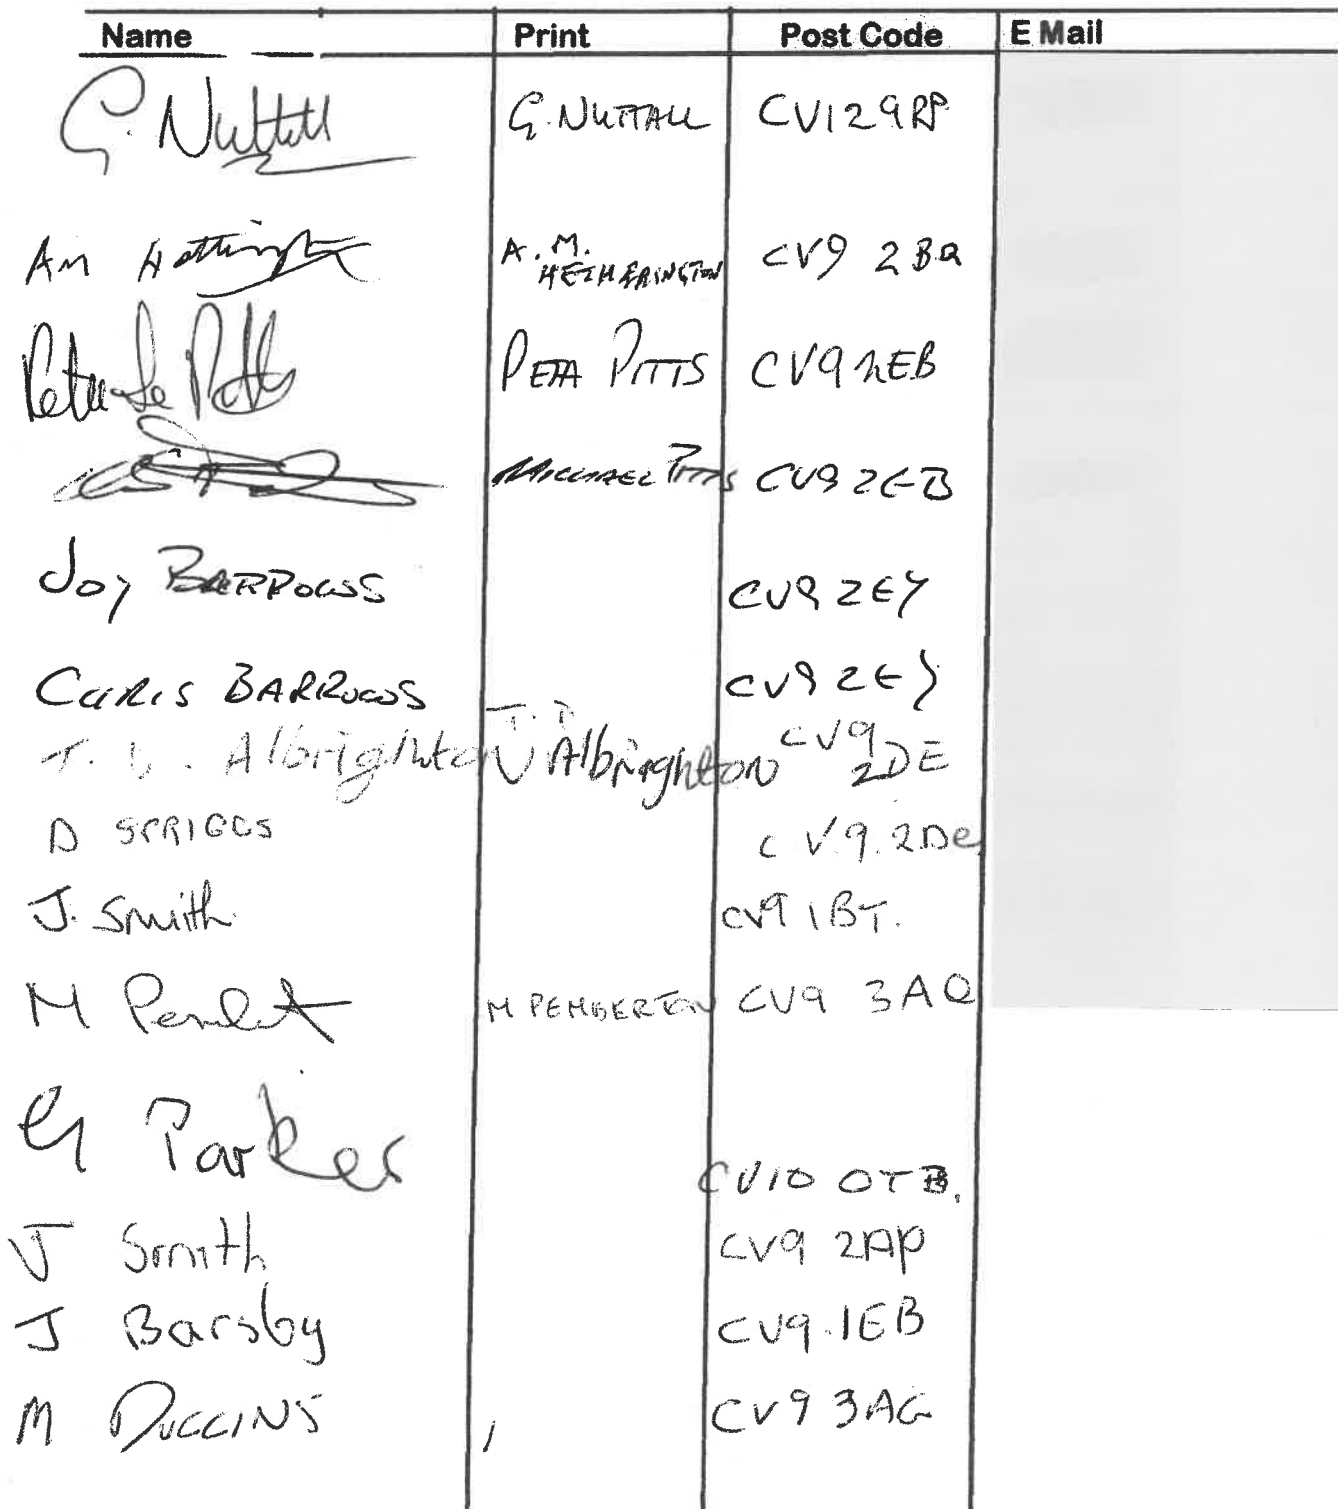 Name Print Post Code E Mail
G. Nuttall G. NUTTALL CV12 9RP
AM Hetherington A. M. HETHERINGTON CV9 2BQ
PETA PITTS CV9 2EB
MICHAEL PITTS CV9 2EB
JOY BARROWS CV9 2EY
CHRIS BARROWS CV9 2EY
Albrighton Albrighton CV9 2DE
D SPRIGGS CV.9.2De
J. Smith CV9 1BT.
M M PEMBERTON CV9 3AQ
G Parker CV10 0TB.
J Smith CV9 2AP
J Barsby CV9 1EB
M CV9 3AG